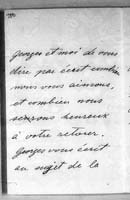 Georges et moi de vous
dire par écrit combien
nous vous aimons,
et combien nous
serons heureux
à votre retour.
Georges vous écrit
au sujet de la